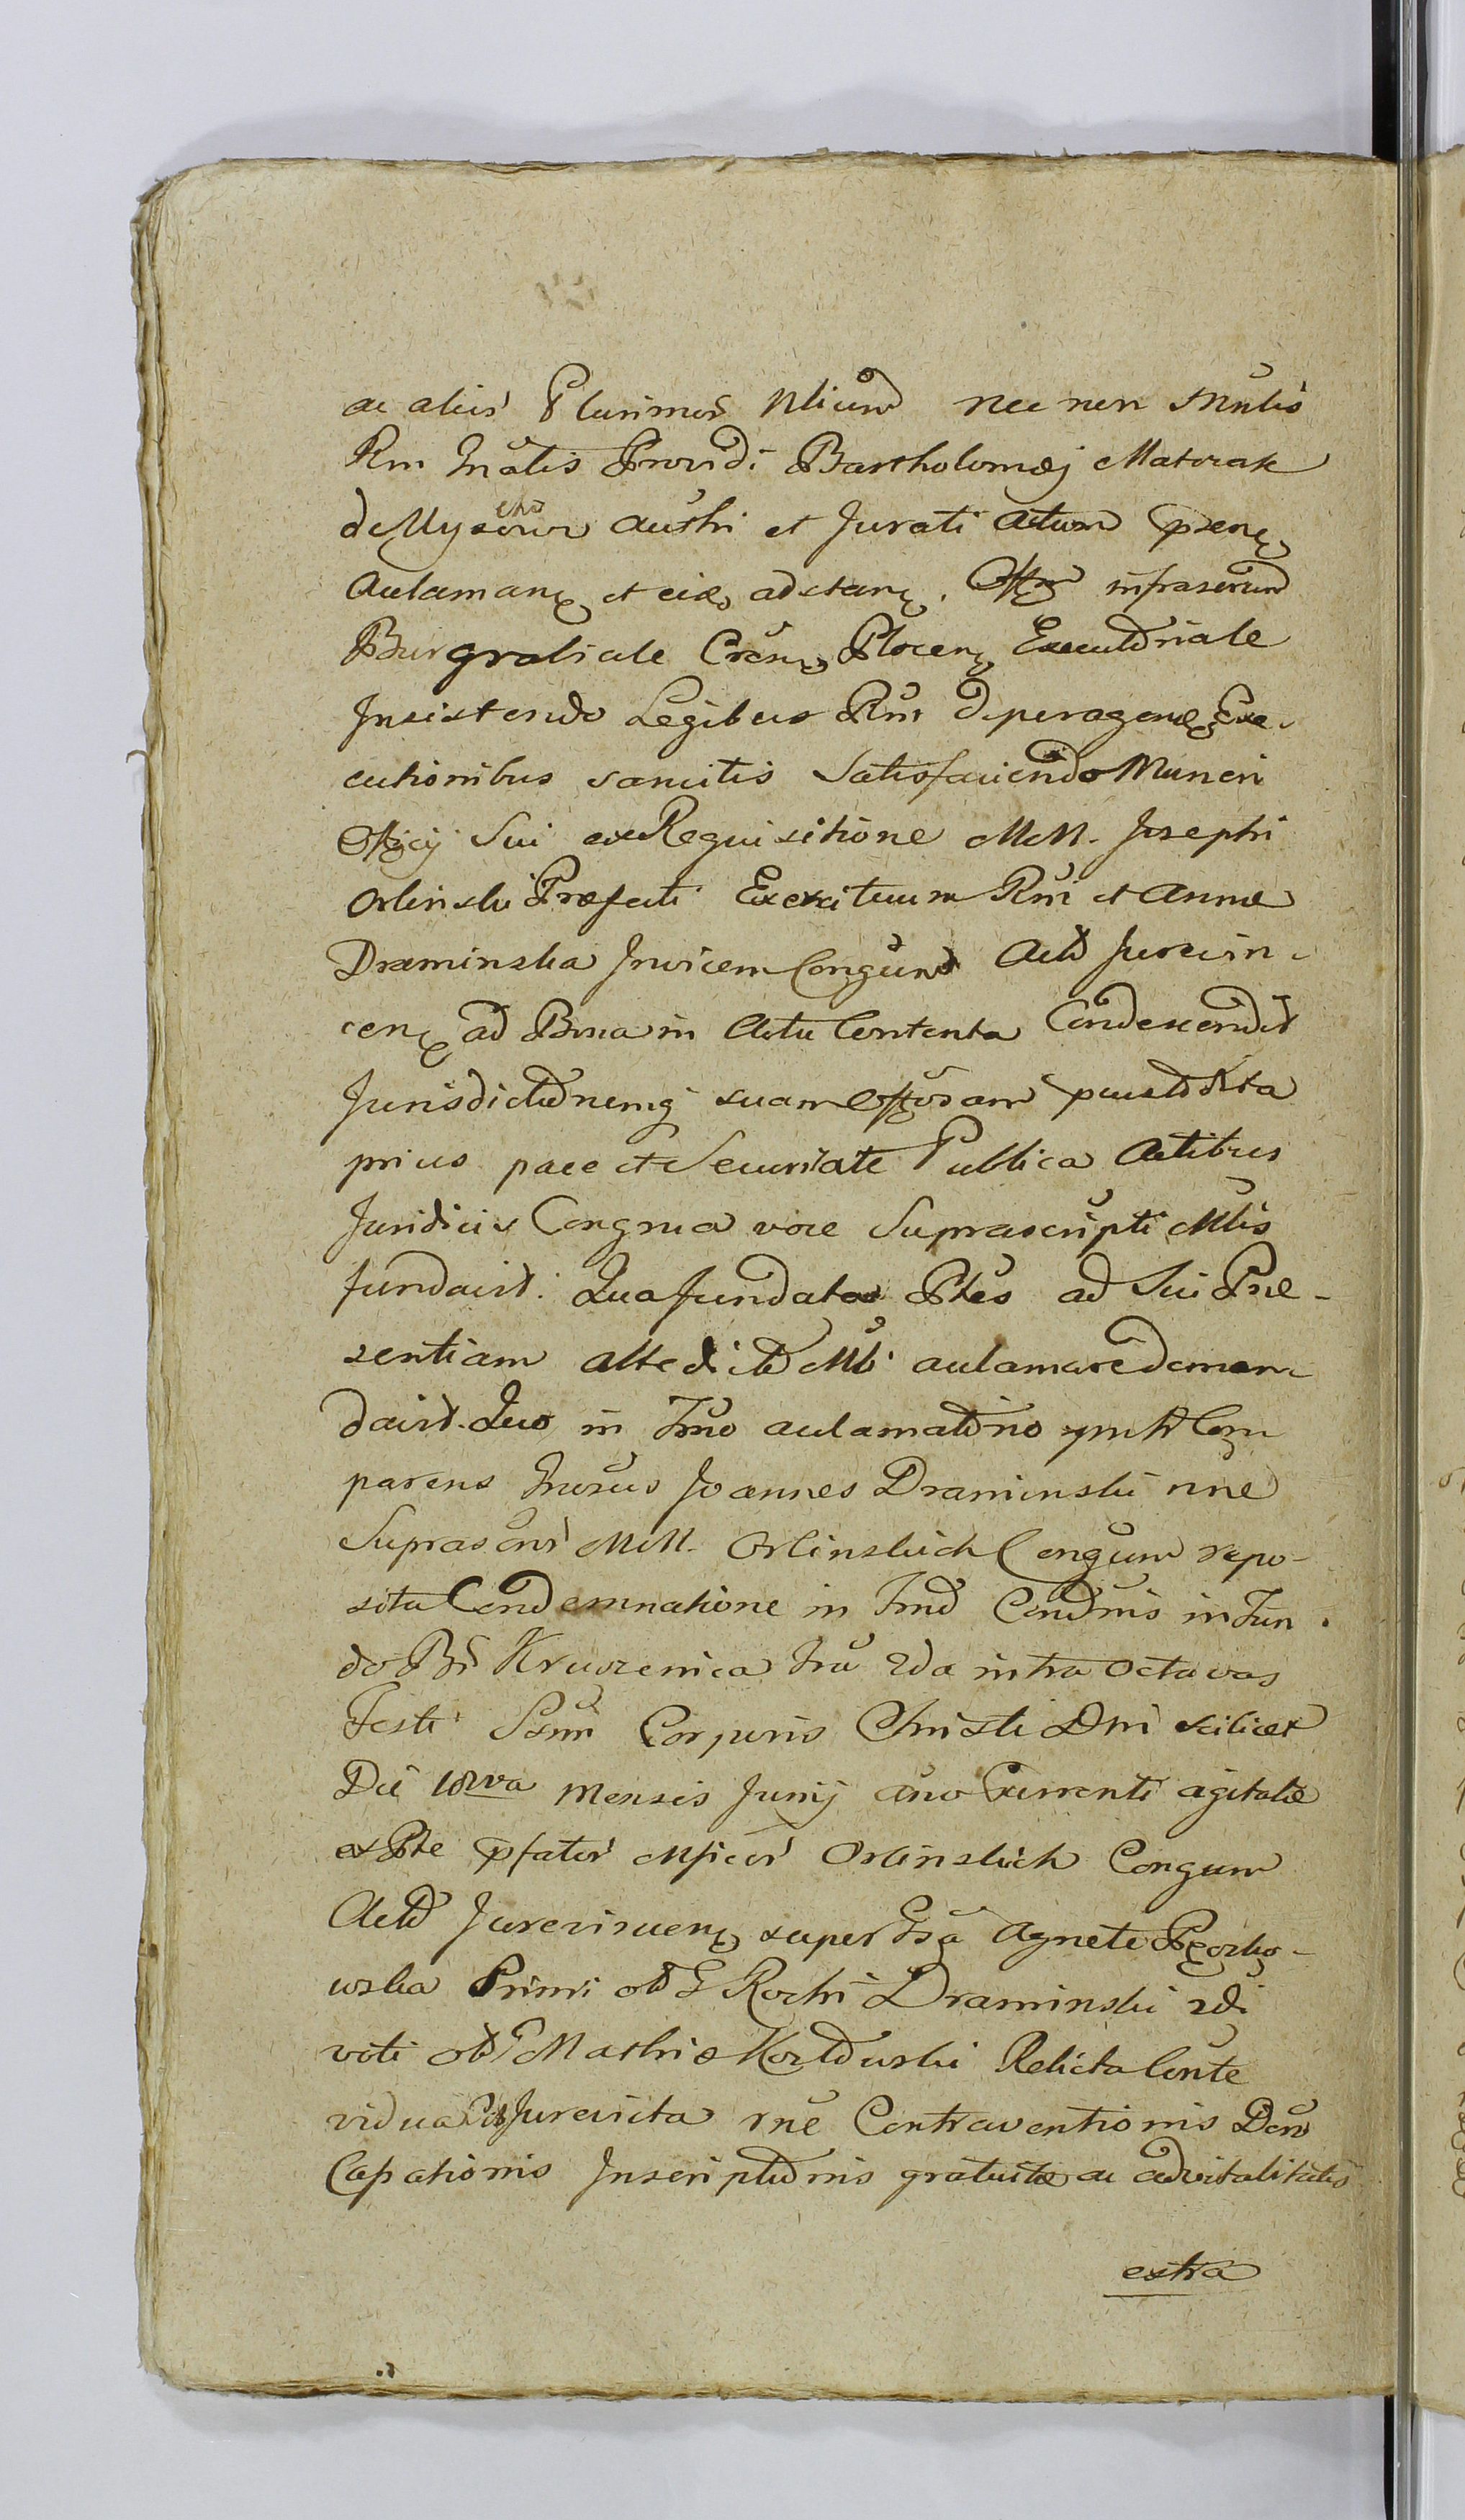 ac aliis Plurimis Nlium nec non Mnlis
Rni Gnalis Providi Bartholomæj Matorak
de Mysz ewo authi et Jurati actum præn
aclaman et eid adstan. Offm infrascrium
Burgrabiale Cren Plocen Executoriale
Insistendo Legibus Rni d peragene Exe-
cutionibus sancitis Satisfaciendo Muneri
Officij Sui ex Requisitione MM. Josephi
Orlinski Præfecti Exercituum Rni et Annæ
Draminska Invicem Congum Acto Jurevin-
cen ad Bona in Actu Contenta Condescendit
Jurisdictionemq suam Offosam
prius pace et Securitate Publica Actibus
Juridicis Congrua voce Suprascripti Mlis
fundavit. Qua fundata Ptes ad Sui Præ-
sentiam attedicto Mli aclamare deman-
davit. Quo in Tmno aclamatono Com
parens Gnosus Joannes Draminski nne
Suprascris MM. Orlinskich Congum repo-
sita Condemnatione in Tmno Condnis in Fun
do Bs Kruszenica fra 2da intra octavas
Festi Ssmi Corporis Christi Dni scilicet
Die 18va Mensis Junij ano Currenti agitatæ
ex Pte pfator Mficor Orlinskich Congum
Acto Jurevincen super Gsa Agnete Pgorko-
wska Primi olim G Rochi Draminski 2di
voti olim G Mathiæ Kozlowski Relicta Conte
vidua Cit Jurevicta rne Contraventionis Dons
Capationis Inscriptionis gratuitæ ac advitalitatis
extra